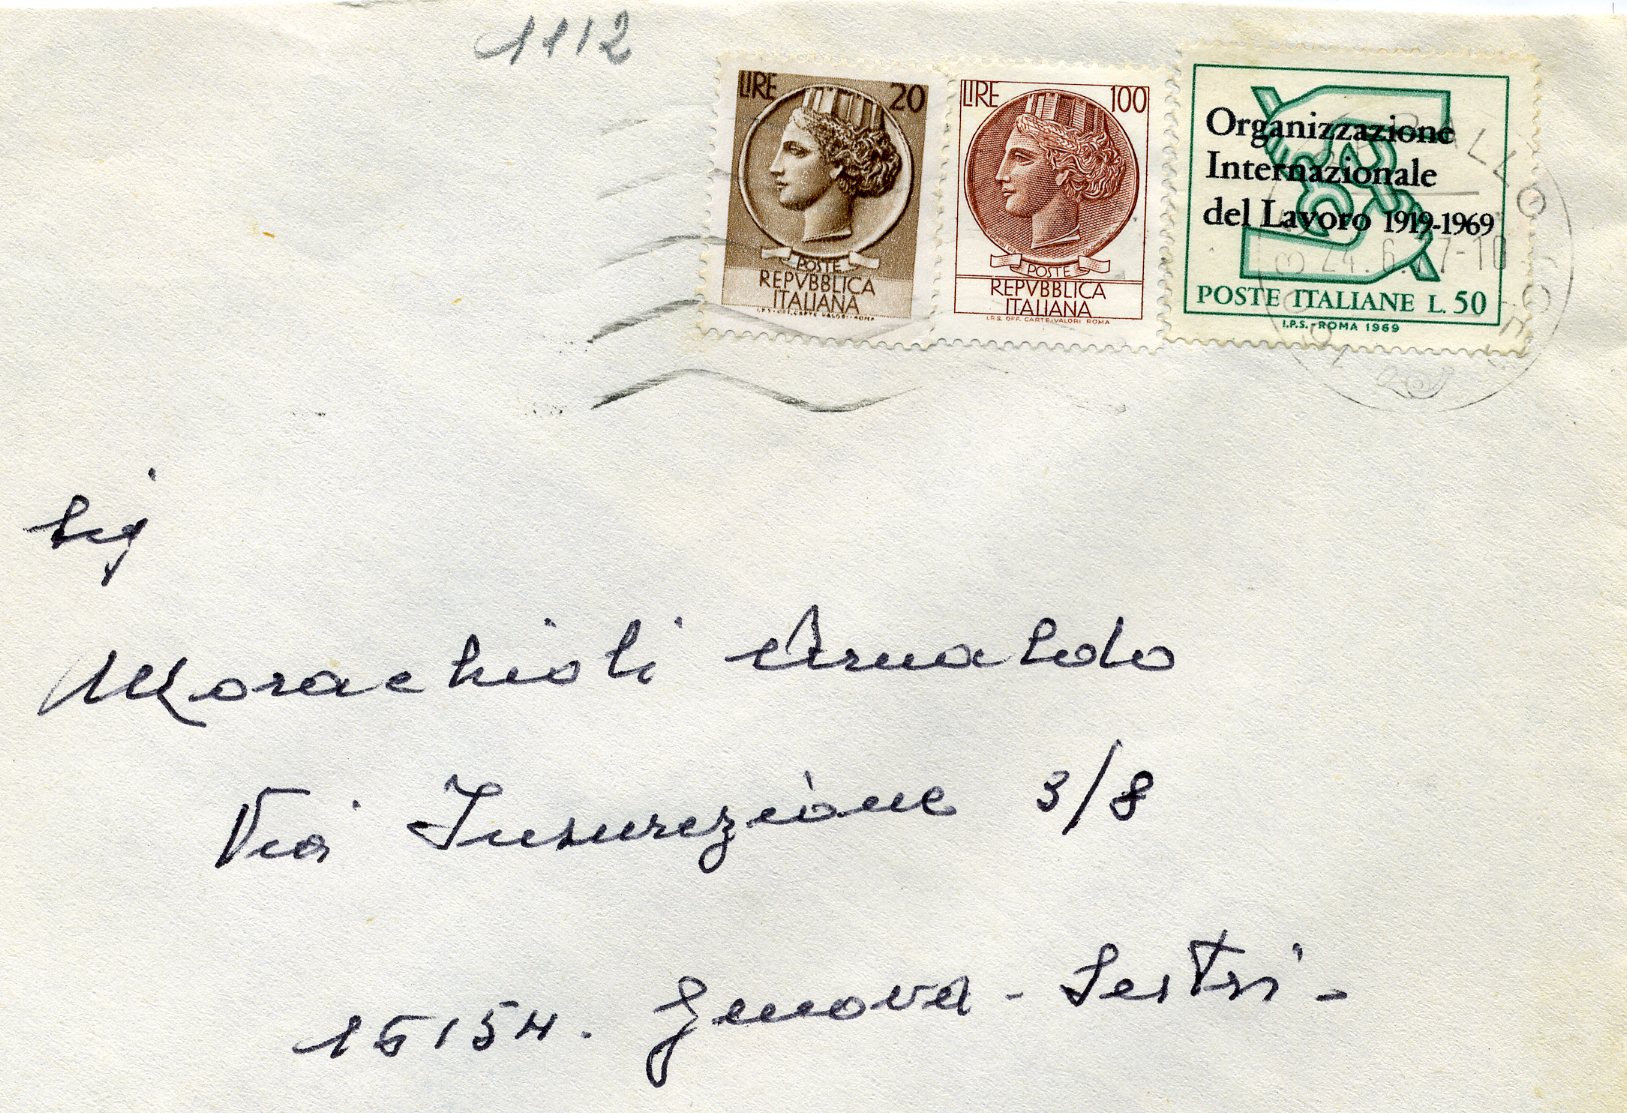 1112
LIRE 20
POSTE
REPVBBLICA
ITALIANA
I.P.S.-OFF. CARTE VALORI-ROMA
LIRE 100
POSTE
REPVBBLICA
ITALIANA
I.P.S. OFF. CARTE VALORI ROMA
Organizzazione
Internazionale
del Lavoro 1919-1969
POSTE ITALIANE L. 50
I.P.S.-ROMA 1969
24.6. 7-10
Sig
Morachioli Arnaldo
Via Insurezione 3/8
16154. Genova - Sestri -